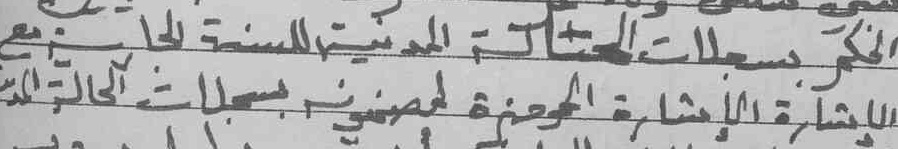 الحكم بسجلات الحالة المدنية للسنة الجارية مع
الإشارة الإشارة الموجزة لمضمونه بسجلات الحالة